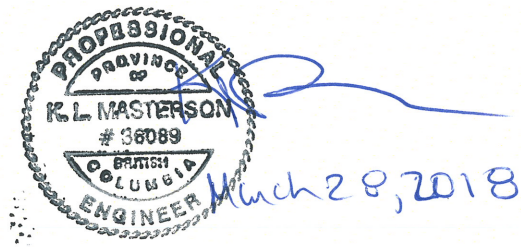 PROFESSIONAL
PROVINCE
OF
K. L. MASTERSON
# 36089
BRITISH
COLUMBIA
ENGINEER
March 28, 2018